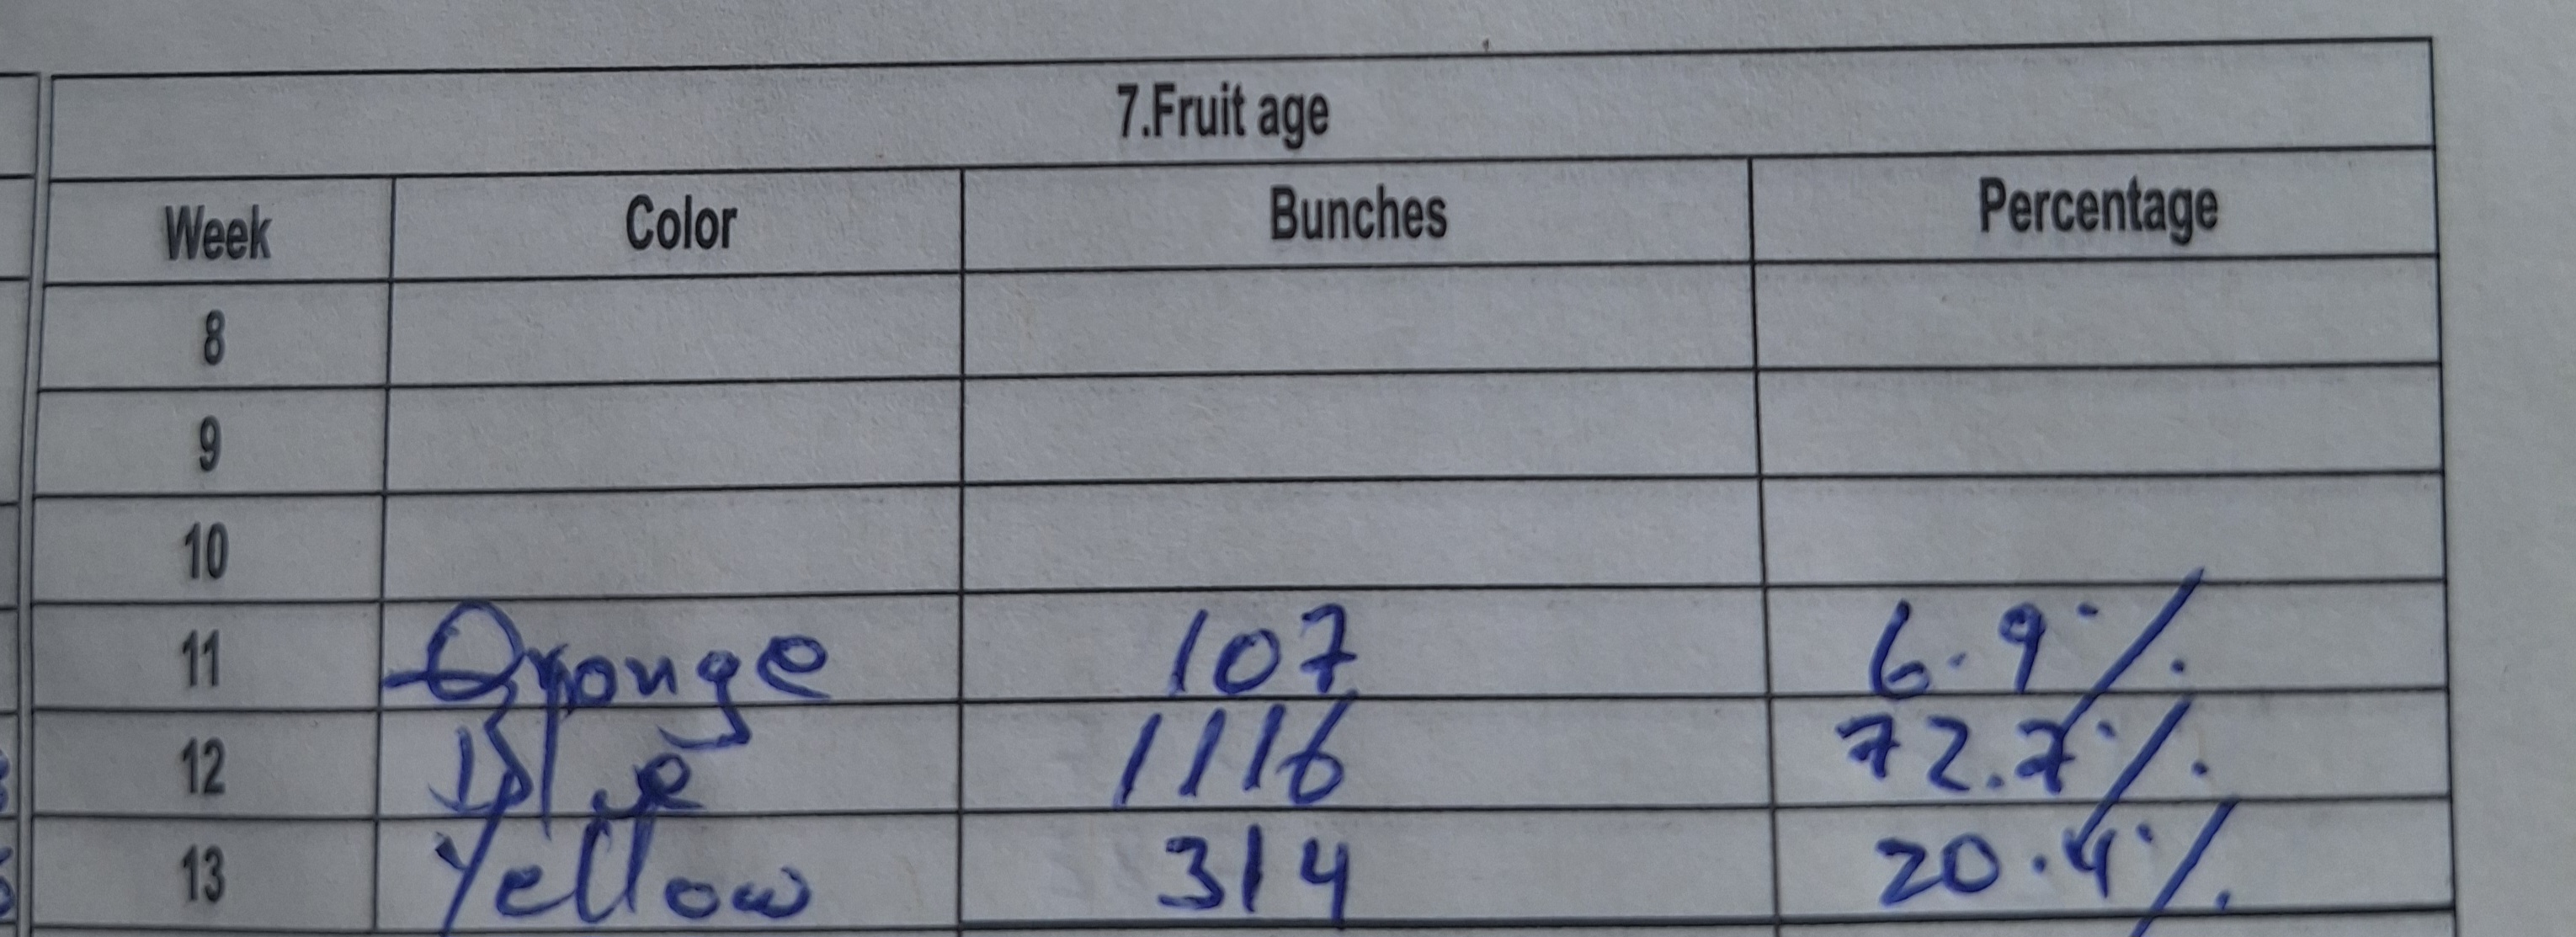 7.Fruit age
Week Color Bunches Percentage
8
9
10
11 Orange 107 6.9%
12 Blue 1116 72.7%
13 Yellow 314 20.4%